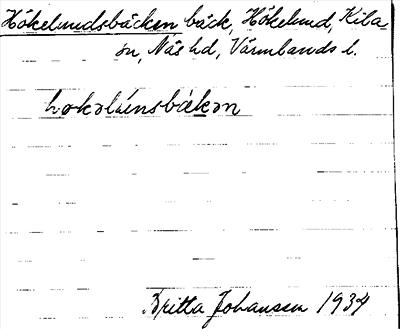 Hökelundsbäcken bäck, Hökelund, Kila
sn, Näs hd, Värmlands l.
hokəlúnsbäkən
Britta Johansson 1934